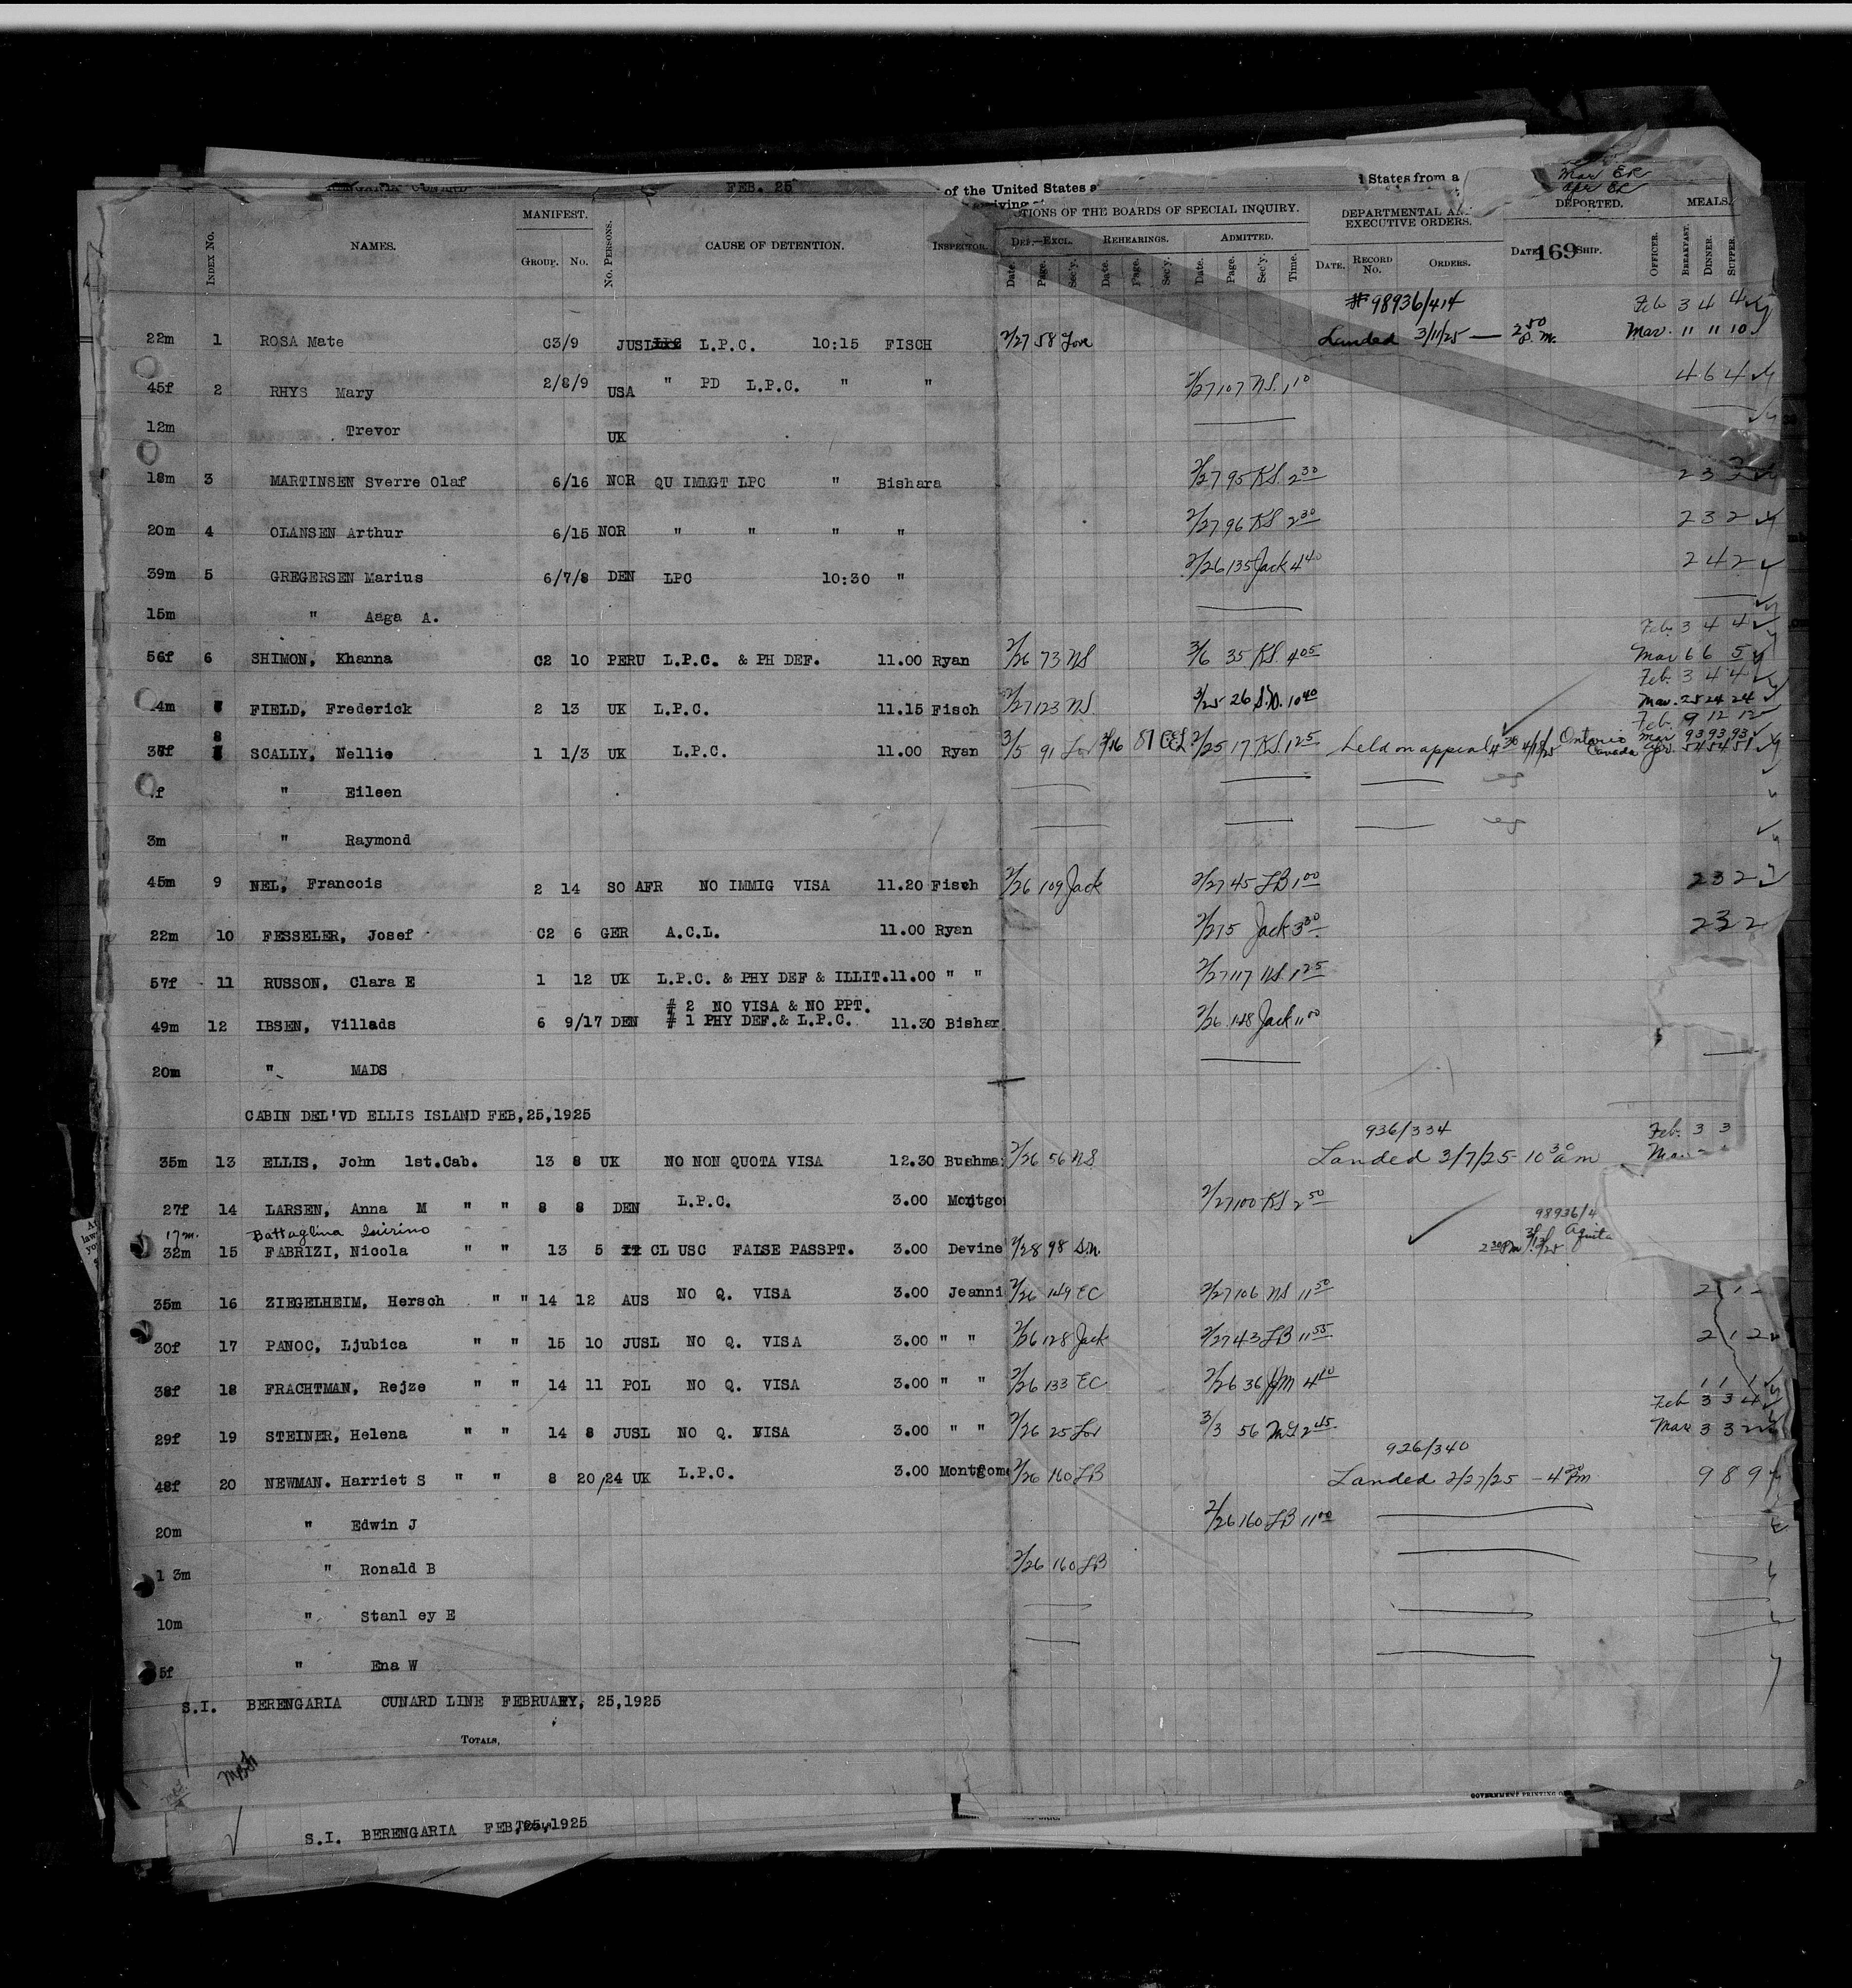 BERENGARIA CUNARD FEB. 25 of the United States States from a Mar ER
Apr ER
169
INDEX No. NAMES. MANIFEST. GROUP. No. No. PERSONS. CAUSE OF DETENTION. INSPECTOR. ACTIONS OF THE BOARDS OF SPECIAL INQUIRY. DEPARTMENTAL AND EXECUTIVE ORDERS. DEPORTED. MEALS.
DEF.—EXCL. REHEARINGS. ADMITTED.
Date. Page. Sec'y. Date. Page. Sec'y. Date. Page. Sec'y. Time. DATE. RECORD No. ORDERS. DATE. SHIP. OFFICER. BREAKFAST. DINNER. SUPPER.
#98936/414 Feb 3 4 4
22m 1 ROSA Mate C3/9 JUSL L.P.C. 10:15 FISCH 2/27 58 Love Landed 3/11/25 — 2 50 P.M. Mar. 11 11 10
45f 2 RHYS Mary 2/8/9 USA " PD L.P.C. " " 2/27 107 NS 1 10 4 6 4
12m Trevor UK
18m 3 MARTINSEN Sverre Olaf 6/16 NOR QU IMMGT LPC " Bishara 2/27 95 KS 2 30 2 3 3
20m 4 OLANSEN Arthur 6/15 NOR " " " " 2/27 96 KS 2 30 2 3 2
39m 5 GREGERSEN Marius 6/7/8 DEN LPC 10:30 " 2/26 135 Jack 4 40 2 4 2
15m " Aaga A.
Feb. 3 4 4
56f 6 SHIMON, Khanna C2 10 PERU L.P.C. & PH DEF. 11.00 Ryan 2/26 73 NS 3/6 35 KS 4 05 Mar 6 6 5
Feb. 3 4 4
4m 7 FIELD, Frederick 2 13 UK L.P.C. 11.15 Fisch 2/27 123 NS 3/25 26 S.N. 10 40 Mar. 25 24 24
Feb. 9 12 12
Mar 93 93 93
8 SCALLY, Nellie 1 1/3 UK L.P.C. 11.00 Ryan 3/5 91 Lov 3/16 81 2/25 17 KS 1 25 Held on appeal 4 30 4/18/25 Ontario Canada Apr. 54 54 51
f " Eileen
3m " Raymond
45m 9 NEL, Francois 2 14 SO AFR NO IMMIG VISA 11.20 Fisch 2/26 109 Jack 2/27 45 LB 1 00 2 3 2
22m 10 FESSELER, Josef C2 6 GER A.C.L. 11.00 Ryan 2/27 5 Jack 3 30 2 3 2
57f 11 RUSSON, Clara E 1 12 UK L.P.C. & PHY DEF & ILLIT. 11.00 " " 2/27 117 NS 1 25
# 2 NO VISA & NO PPT.
49m 12 IBSEN, Villads 6 9/17 DEN # 1 PHY DEF. & L.P.C. 11.30 Bishar 2/26 128 Jack 11 00
20m " MADS
CABIN DEL'VD ELLIS ISLAND FEB,25,1925
936/334 Feb. 3 3
35m 13 ELLIS, John 1st.Cab. 13 8 UK NO NON QUOTA VISA 12.30 Bushma 2/26 56 NS Landed 3/7/25 10 30 am Mar
27f 14 LARSEN, Anna M " " 8 8 DEN L.P.C. 3.00 Montgo 2/27 100 KS 2 50
17m. Battaglina Quirino 98936/4
32m 15 FABRIZI, Nicola " " 13 5 CL USC FALSE PASSPT. 3.00 Devine 2/28 98 S.N. 2 30 PM 3/13/25 Aquita
35m 16 ZIEGELHEIM, Hersch " " 14 12 AUS NO Q. VISA 3.00 Jeanni 2/26 149 EC 2/27 106 NS 11 50 2 1 2
30f 17 PANOC, Ljubica " " 15 10 JUSL NO Q. VISA 3.00 " " 2/26 128 Jack 2/27 43 LB 11 55 2 1 2
38f 18 FRACHTMAN, Rejze " " 14 11 POL NO Q. VISA 3.00 " " 2/26 133 EC 2/26 36 4 40 1 1 1
Feb 3 3 4
29f 19 STEINER, Helena " " 14 8 JUSL NO Q. VISA 3.00 " " 2/26 25 Lov 3/3 56 2 45 Mar 3 3 2
926/340
48f 20 NEWMAN. Harriet S " " 8 20/24 UK L.P.C. 3.00 Montgome 2/26 160 LB Landed 2/27/25 - 4 20 Pm 9 8 9
20m " Edwin J 2/26 160 LB 11 00
1 3m " Ronald B 2/26 160 LB
10m " Stanl ey E
5f " Ena W
S.I. BERENGARIA CUNARD LINE FEBRUARY, 25,1925
TOTALS,
GOVERNMENT PRINTING
S.I. BERENGARIA FEB,25,1925